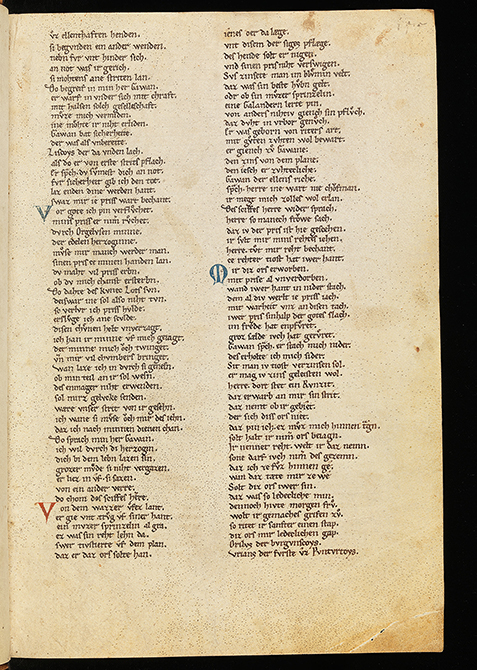 vz ellenthaften henden.
si begunden ein ander wenden.
nebn fvr vnt hinder sich.
an not was ir gerich.
si mohtens ane striten lan.
Do begreif in min her Gawan.
er warf in vnder sich mit chraft.
mit halsen solch gesellescaft.
mvze mich vermiden.
ine mohte ir niht erliden.
Gawan bat sicherheite.
der was als vnbereite.
Lisoys der da vnden lach.
als do er von erste strits pflach.
er sprach dv svmest dich an not.
fvr sicherheit gib ich den tot.
laz enden dine werden hant.
swaz mir ie priss wart bechant.
Vor gote ich pin verflvchet.
mins priss er nimer rvchet.
dvrch Orgelvsen minne.
der edelen herzoginne.
mvse mir manech werder man.
sinen pris ze minen handen lan.
dv maht vil priss erbn.
ob dv mich chanst ersterbn.
Do dahte des kvnec Lots svn.
deiswar ine sol also niht tvn.
so verlvr ich priss hvlde.
erslvge ich ane scvlde.
disen chvnen helt vnverzagt.
in hat ir minne vf mich geiagt.
der minne mich och twinget.
vn mir vil chvmbers bringet.
wan laze ich in dvrch si genesn.
ob min teil an ir sol wesn.
des enmager niht erwenden.
sol mirz gelvcke senden.
ware vnser strit von ir gesehn.
ich wane si mvse och mir des iehn.
daz ich nach minnen dienen chan.
Do sprach min her Gawan.
ich wil dvrch di herzogin.
dich bi dem lebn lazen sin.
grozer mvde si niht vergazen.
er liez in vf si sazen.
von ein ander verre.
do chom des sciffes herre.
Von dem wazzer vfez lant.
er gie vnt trvg vf siner hant.
ein mvzer sprinzelin al gra.
ez was sin reht lehn da.
swer tiostierte vf dem plan.
daz er daz ors solte han.
ienes der da læge.
vnt disem der sigez pflæge.
des hende solt er nigen.
vnd sinen pris niht verswigen.
Svs zinsete man im blvmin velt.
daz was sin beste hvbn gelt.
ode ob sin mvzer sprinzelin.
eine galandern lerte pin.
von anders nihtiv giench sin pflvch.
daz dvht in vrbor genvch.
er was geborn von riters art.
mit gvten zvhten wol bewart.
er giench zv Gawane.
den zins von dem plane.
den iesch er zvhtecliche.
Gawan der ellens riche.
sprach herre ine wart nie chofman.
ir mvget mich zolles wol erlan.
Des sciffes herre wider sprach.
herre so manech frowe sach.
daz iv der pris ist hie gescehen.
ir svlt mir mins rehtes iehen.
herre tvt mir reht bechant.
ze rehter tiost hat iwer hant.
Mir diz ors erworben.
mit prise al vnverdorben.
wand iwer hant in nider stach.
dem al div werlt ie priss iach.
mit warheit vnz an disen tach.
iwer pris sinhalp der gotes slach.
im frvde hat enpfvret.
groz sælde ivch hat gervret.
Gawan sprach er stach mich nider.
des erholte ich mich sider.
Sit man iv tiost verzinsen sol.
er mag iv zins geleisten wol.
herre dort stet ein Rvnzit.
daz erwarb an mir sin strit.
daz nemt ob ir gebiet.
der sich diss ors niet.
daz pin ich ez mvz mich hinnen tragn.
solt halt ir nimer ors beiagn.
ir nennet reht welt ir daz nemn.
sone darf ivch nimer des gezemn.
daz ich ze fvz hinnen ge.
wan daz tæte mir ze we
Solt diz ors iwer sin.
daz was so ledecliche min.
dennoch hivte morgen frv.
wolt ir gemaches grifen zv.
so ritet ir sanfter einen stap.
diz ors mir ledeclichen gap.
Orilvs der bvrgvnscoys.
Vrians der fvrste vz Pvntvrtoys.